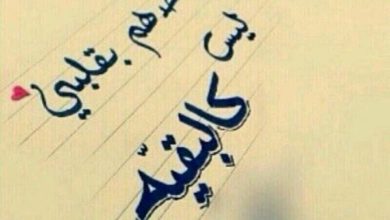 بقلبي
ليس
كالبقيّه